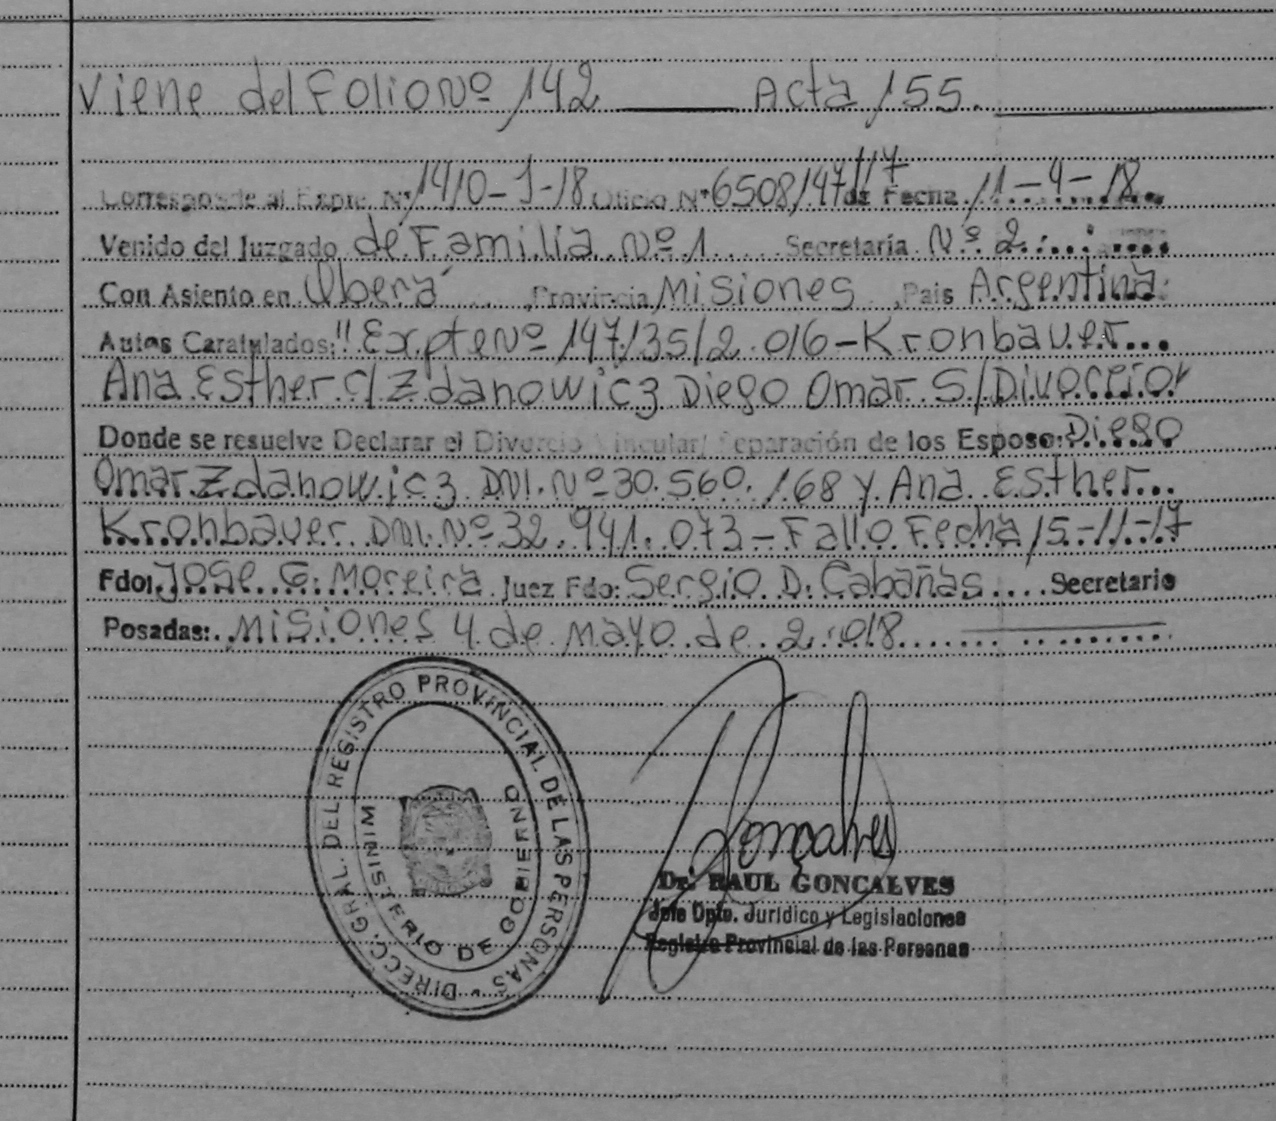 Viene del Folio Nº 142 Acta 155.
Corresponde al Expte. Nº 1410-J-18 Oficio Nº 6508/147/17 de Fecha 11-4-18
Venido del Juzgado de Familia Nº 1 Secretaría Nº 2
Con Asiento en Oberá Provincia Misiones País Argentina
Autos Caratulados: "Expte Nº 147135/2.016-Kronbauer
Ana Esther C/Zdanowicz Diego Omar S/Divorcio"
Donde se resuelve Declarar el Divorcio Vincular/ Separación de los Esposo: Diego
Omar Zdanowicz DNI. Nº 30.560.168 y Ana Esther
Kronbauer DNI. Nº 32.941.073 - Fallo Fecha 15-11-17
Fdo: Jose G. Moreira Juez Fdo: Sergio D. Cabañas Secretario
Posadas: Misiones 4 de mayo de 2.018
DIRECC. GRAL. DEL REGISTRO PROVINCIAL DE LAS PERSONAS
MINISTERIO DE GOBIERNO
Gonçalves
Dr. RAUL GONCALVES
Jefe Dpto. Jurídico y Legislaciones
Registro Provincial de las Personas